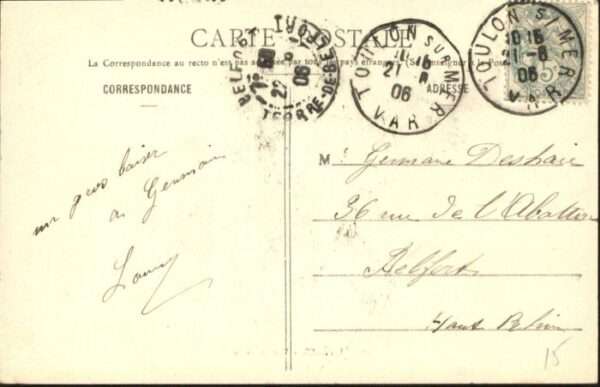 CARTE POSTALE
La Correspondance au recto n'est pas acceptée par tous les pays étrangers. (Se renseigner à la Poste)
CORRESPONDANCE
ADRESSE
BELFORT
22
06
TERRE-DE-BELFORT
TOULON SUR MER
21
06
VAR
TOULON S/ MER
10 15
21 -8
06
VAR
5
un gros baiser
à Germain
M Germane
36 rue de l'Abattoir
Belfort
Haut Rhin
15